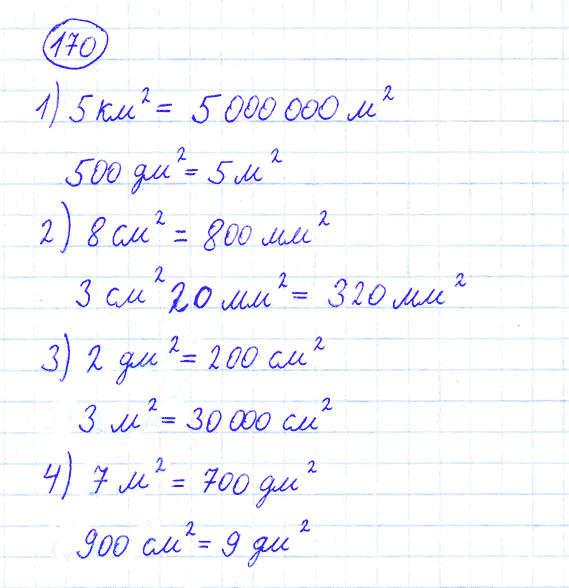 170
1) 5 км² = 5 000 000 м²
500 дм² = 5 м²
2) 8 см² = 800 мм²
3 см² 20 мм² = 320 мм²
3) 2 дм² = 200 см²
3 м² = 30 000 см²
4) 7 м² = 700 дм²
900 см² = 9 дм²